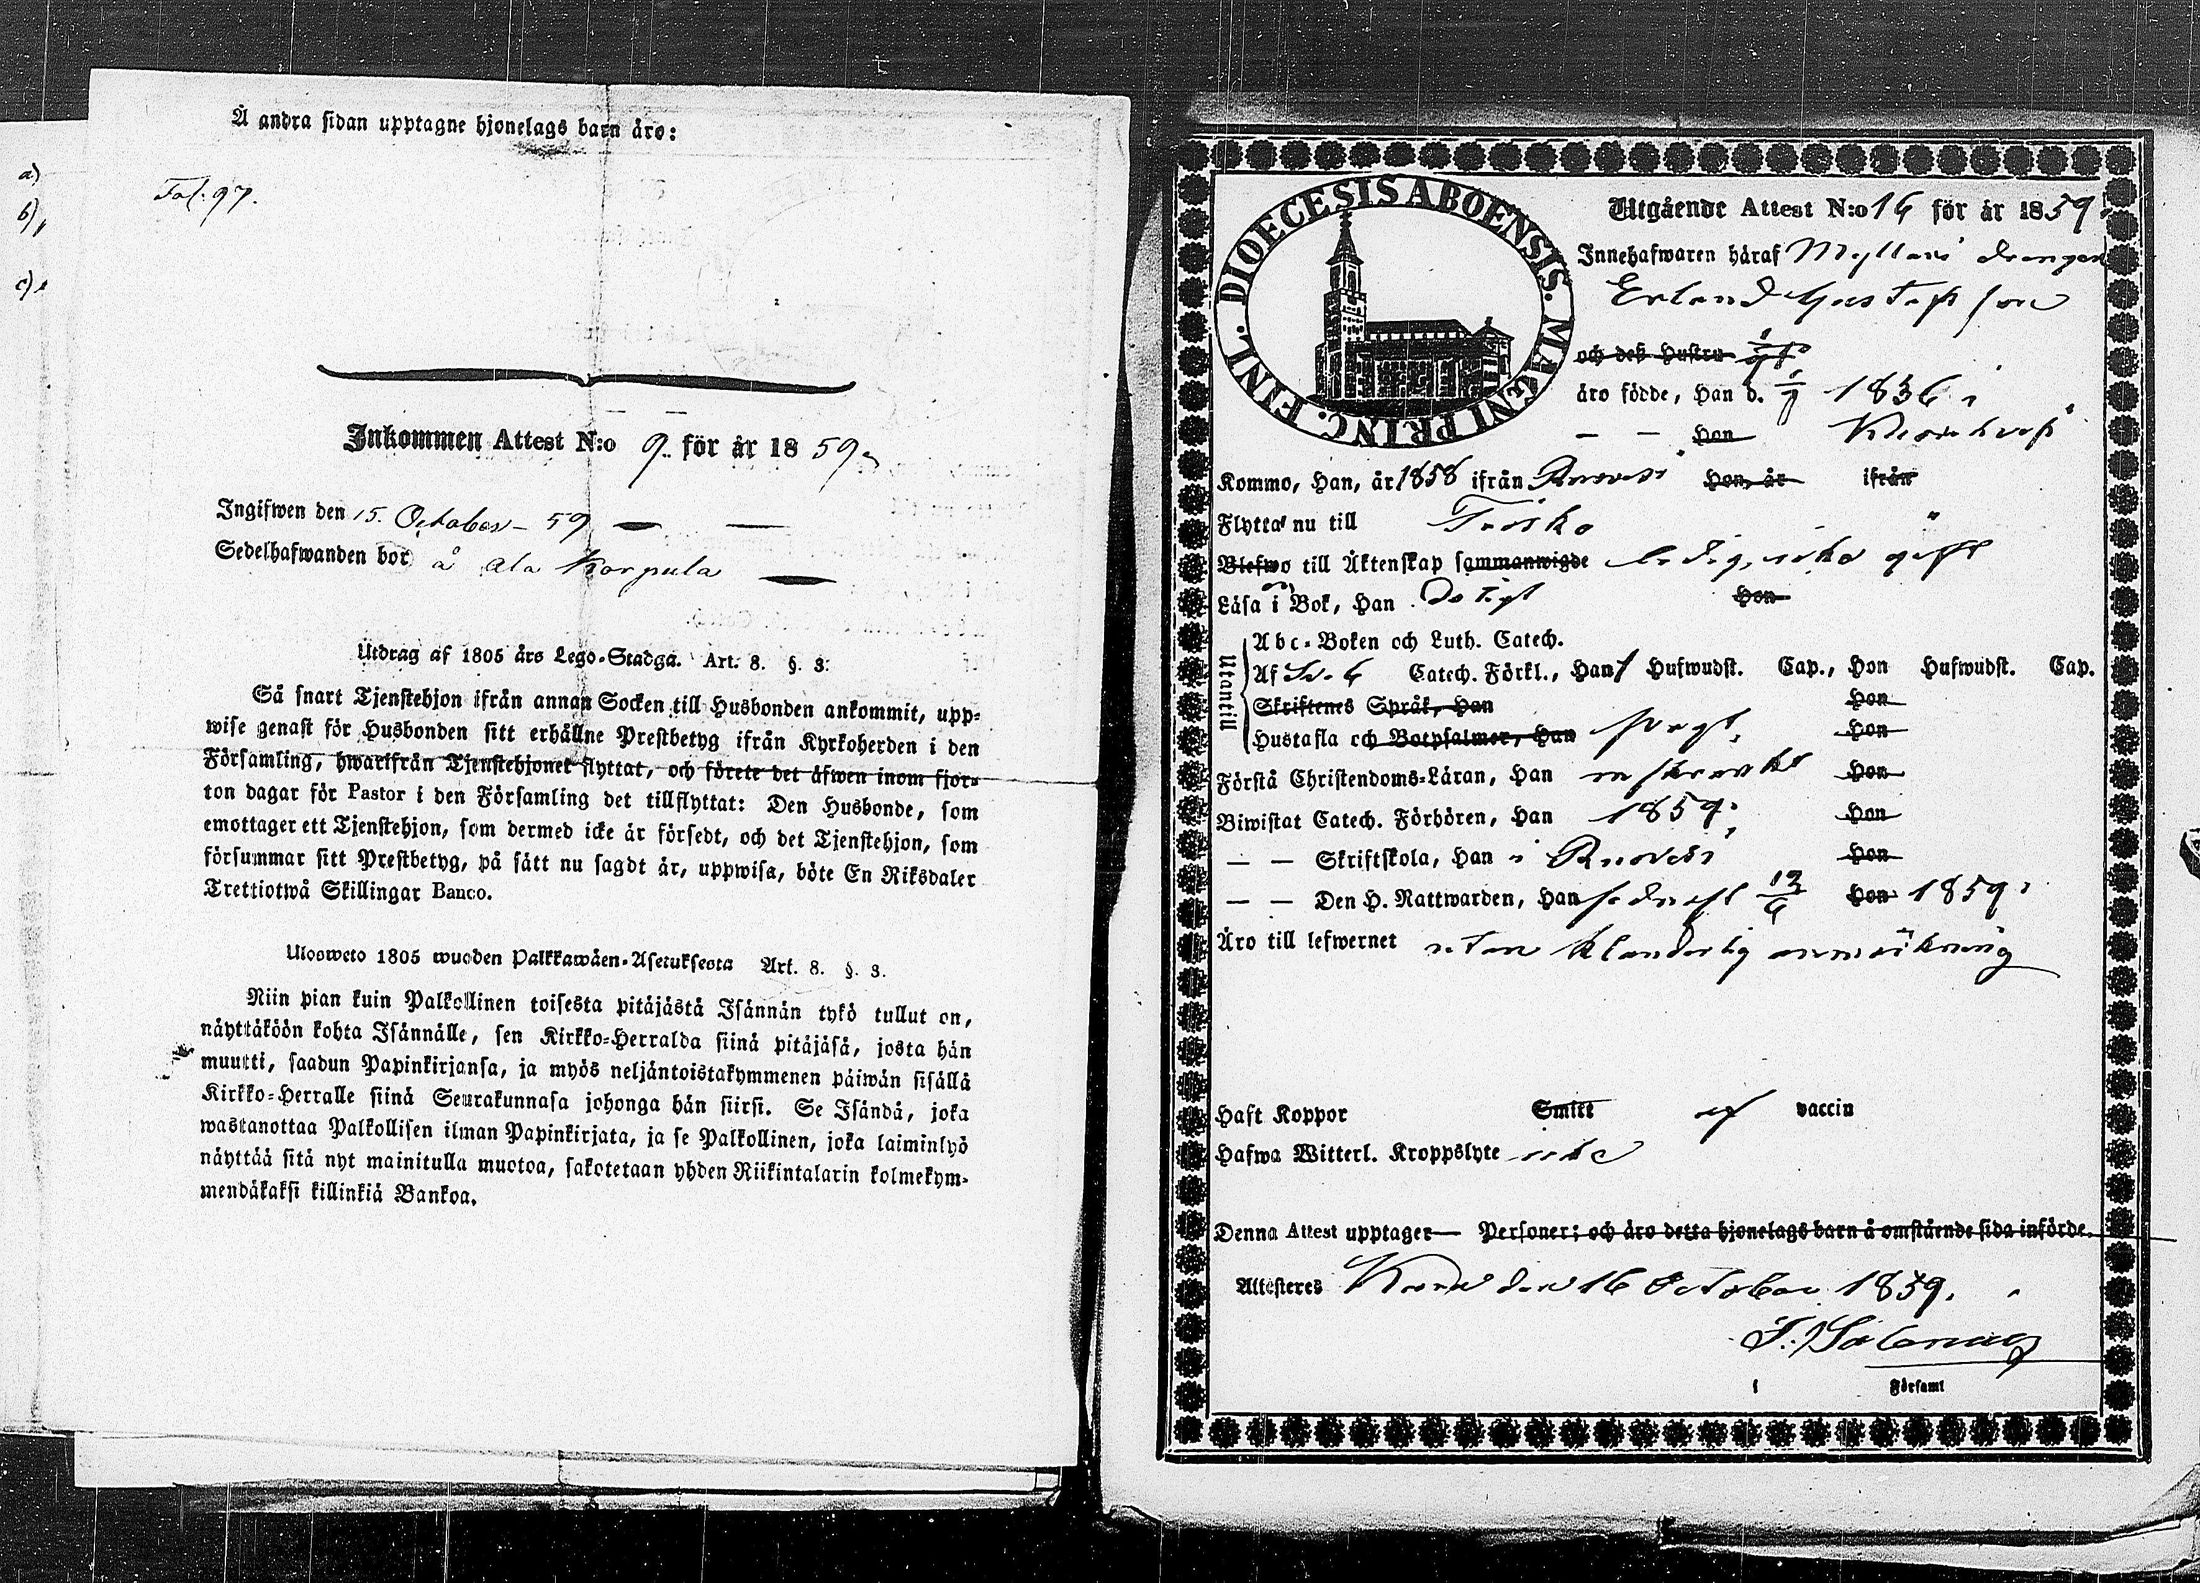 Å andra sidan upptagne hjonelags barn äro:
a)
b)
c)
Fol. 97.
Inkommen Attest N:o 9. för år 1859.
Ingifwen den 15. October 59
Sedelhafwanden bor å Ala Korpula
Utdrag af 1805 års Lego-Stadga. Art. 8. §. 3.
Så snart Tjenstehjon ifrån annan Socken till Husbonden ankommit, upp-
wise genast för Husbonden sitt erhållne Prestbetyg ifrån Kyrkoherden i den
Församling, hwarifrån Tjenstehjonet flyttat, och förete det äfwen inom fjor-
ton dagar för Pastor i den Församling det tillflyttat: Den Husbonde, som
emottager ett Tjenstehjon, som dermed icke är försedt, och det Tjenstehjon, som
försummar sitt Prestbetyg, på sätt nu sagdt är, uppwisa, böte En Riksdaler
Trettiotwå Skillingar Banco.
Ulosweto 1805 wuoden Palkkawäen-Asetuksesta Art. 8. §. 3.
Niin pian kuin Palkollinen toisesta pitäjästä Isännän tykö tullut on,
näyttäköön kohta Isännälle, sen Kirkko-Herralda siinä pitäjäsä, josta hän
muutti, saadun Papinkirjansa, ja myös neljäntoistakymmenen päiwän sisällä
Kirkko-Herralle siinä Seurakunnasa johonga hän siirsi. Se Isändä, joka
wastanottaa Palkollisen ilman Papinkirjata, ja se Palkollinen, joka laiminlyö
näyttää sitä nyt mainitulla muotoa, sakotetaan yhden Riikintalarin kolmekym-
mendäkaksi killinkiä Bankoa.
DIOECESIS ABOENSIS. MAGNI PRINC. FINL.
Utgående Attest N:o 16 för år 1859.
Innehafwaren häraf drängen
Erland Gustafsson
och deß Hustru
äro födde, Han d. 1836 i
— — Hon
Kommo, Han, år 1858 ifrån Ruovesi Hon, år ifrån
Flytta nu till
Blefwo till Äktenskap sammanwigde ledig, icke gift
Läsa i Bok, Han Hon
Utantill
Abc-Boken och Luth. Catech.
Af Catech. Förkl., Han Hufwudst. Cap., Hon Hufwudst. Cap.
Skriftenes Språk, Han Hon
Hustafla och Botpsalmer, Han Hon
Förstå Christendoms-Läran, Han Hon
Biwistat Catech. Förhören, Han 1859. Hon
— — Skriftskola, Han i Ruovesi Hon
— — Den H. Nattwarden, Han sednast Hon 1859.
Äro till lefwernet utan klanderlig anmärkning
Haft Koppor Smitt af vaccin
Hafwa Witterl. Kroppslyte
Denna Attest upptager — Personer; och äro detta hjonelags barn å omstående sida införde.
Attesteres den 16 October 1859.
i Församl